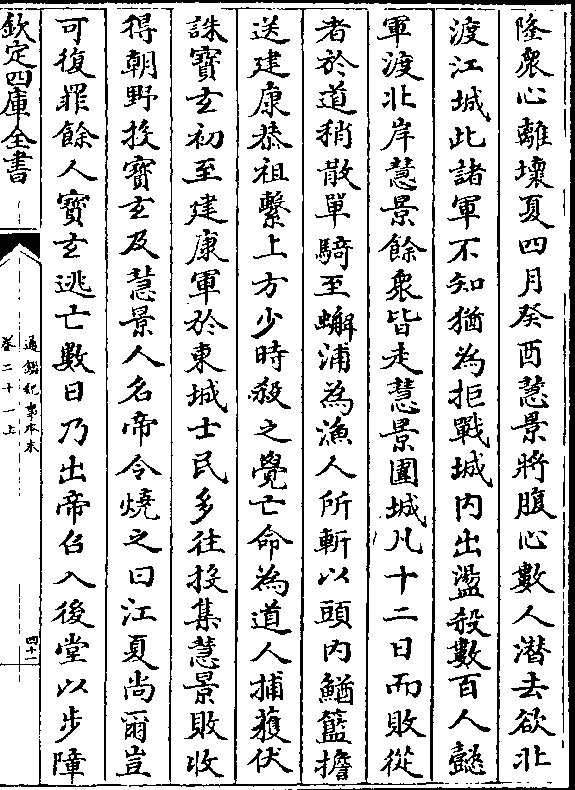 隆衆心離壞夏四月癸酉慧景將腹心數人潜去欲北
渡江城北諸軍不知猶為拒戰城内出盪殺數百人懿
軍渡北岸慧景餘衆皆走慧景圍城凡十二日而敗從
者於道稍散單騎至蠏浦為漁人所斬以頭内鰌籃擔
送建康恭祖繫上方少時殺之覺亡命為道人捕獲伏
誅寶玄初至建康軍於東城士民多往投集慧景敗收
得朝野投寶玄及慧景人名帝令燒之曰江夏尚爾豈
可復罪餘人寶玄逃亡數日乃出帝召入後堂以步障
欽定四庫全書
通鑑紀事本末
卷二十一上
四十一